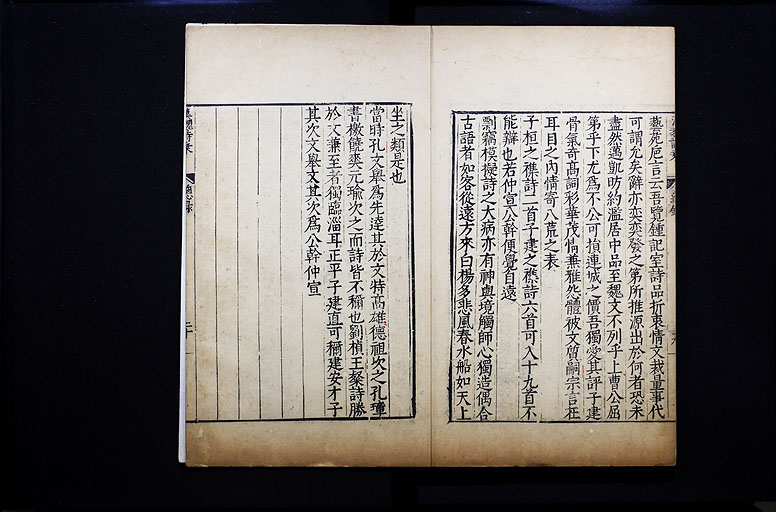 藝苑巵言云吾覽鍾記室詩品折衷情文裁量事代
可謂允矣辭亦奕奕發之第所推源出於何者恐未
盡然邁凱昉約濫居中品至魏文不列乎上曹公屈
第乎下尤爲不公可損連城之價吾獨愛其評子建
骨氣奇高詞彩華茂情兼雅怨體被文質嗣宗言在
耳目之內情寄八荒之表
子桓之襍詩二首子建之襍詩六首可入十九首不
能辯也若仲宣公幹便覺自遠
剽竊模擬詩之大病亦有神與境觸師心獨造偶合
古語者如客從遠方來白楊多悲風春水船如天上
坐之類是也
當時孔文舉爲先達其於文特高雄德祖次之孔璋
書檄饒爽元瑜次之而詩皆不稱也劉楨王粲詩勝
於文兼至者獨臨淄耳正平子建直可稱建安才子
其次文舉又其次爲公幹仲宣